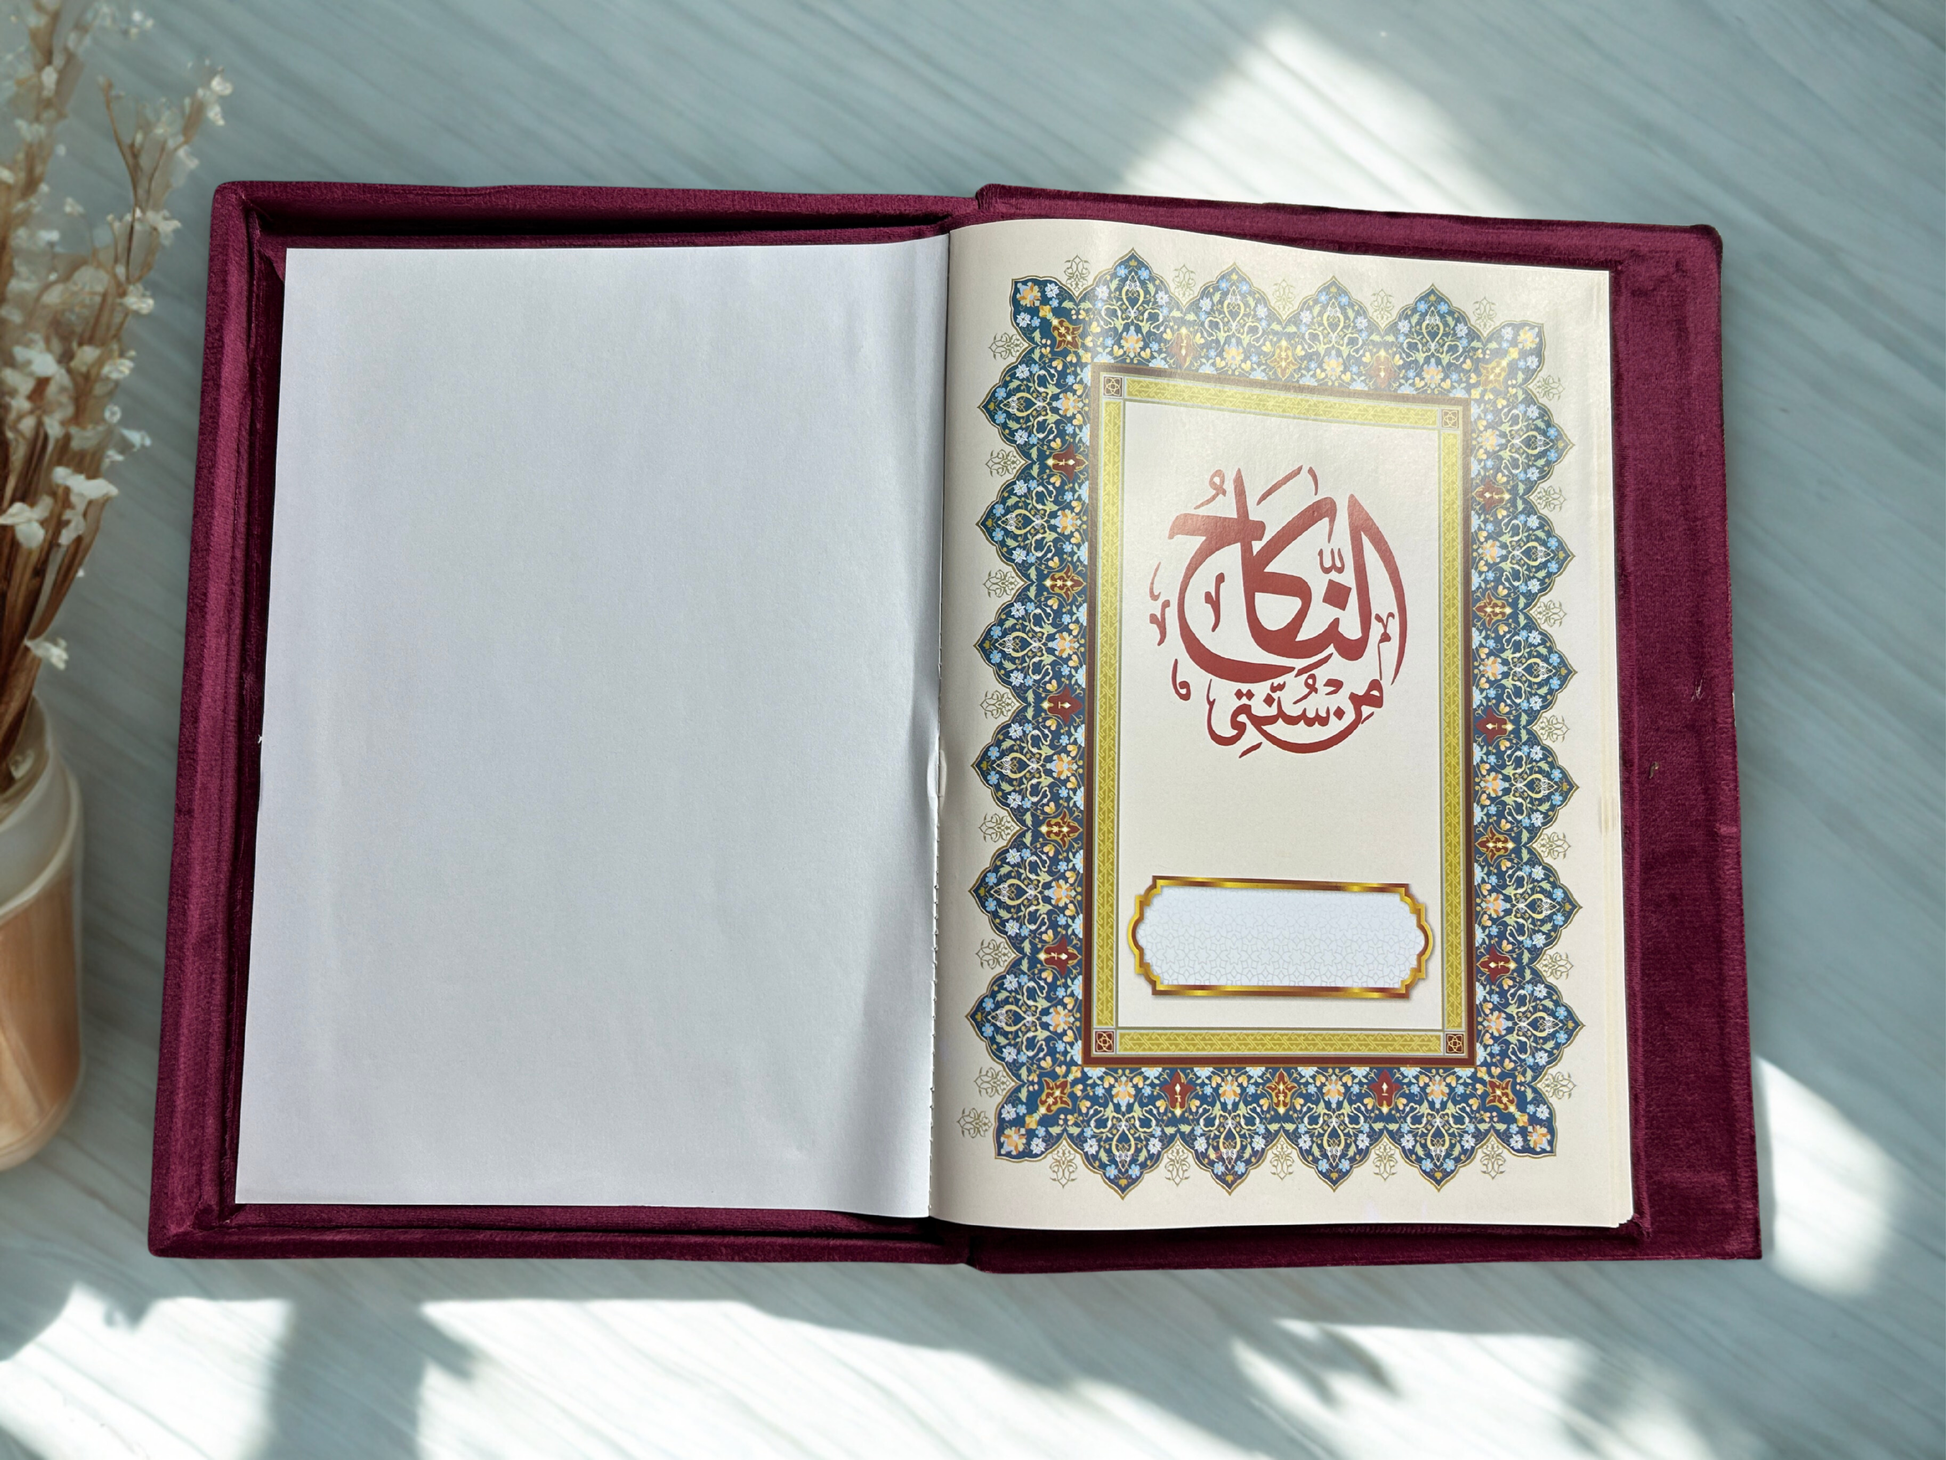 النِّكَاحُ
مِنْ سُنَّتِي